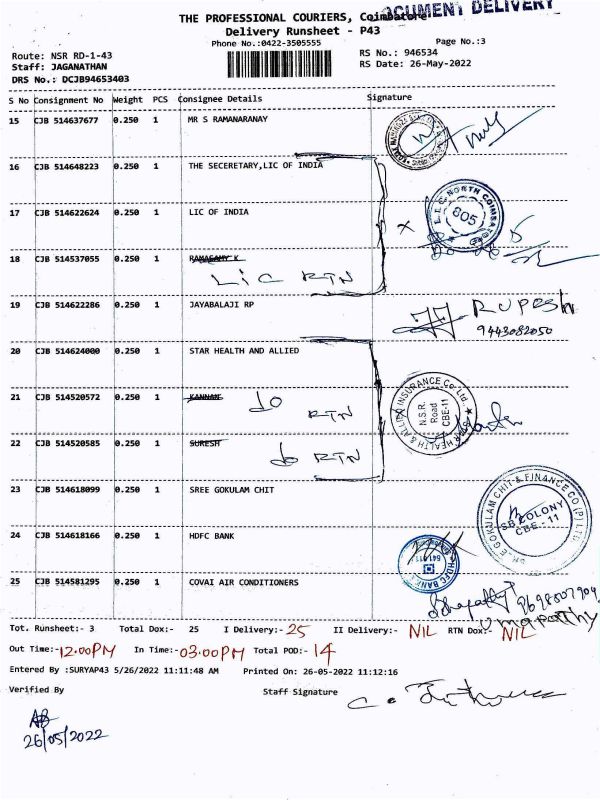 DOCUMENT DELIVERY
THE PROFESSIONAL COURIERS, Coimbatore
Delivery Runsheet - P43
Phone No.:0422-3505555
Page No.:3
Route: NSR RD-1-43
RS No.: 946534
Staff: JAGANATHAN
RS Date: 26-May-2022
DRS No.: DCJB94653403
S No Consignment No Weight PCS Consignee Details Signature
15 CJB 514637677 0.250 1 MR S RAMANARANAY
16 CJB 514648223 0.250 1 THE SECERETARY,LIC OF INDIA
17 CJB 514622624 0.250 1 LIC OF INDIA
L.I.C. NORTH COIMBATORE
805
18 CJB 514537055 0.250 1 RAMASAMY K
LIC RTN
19 CJB 514622286 0.250 1 JAYABALAJI RP
RUPESh
9443082050
20 CJB 514624000 0.250 1 STAR HEALTH AND ALLIED
21 CJB 514520572 0.250 1 KANNAN
do RTN
STAR HEALTH & ALLIED INSURANCE Co. Ltd.,
N.S.R.
Road
CBE-11
22 CJB 514520585 0.250 1 SURESH
do RTN
23 CJB 514618099 0.250 1 SREE GOKULAM CHIT
SREE GOKULAM CHIT & FINANCE CO (P) LTD.
SB COLONY
CBE - 11
24 CJB 514618166 0.250 1 HDFC BANK
HDFC BANK
641 011
25 CJB 514581295 0.250 1 COVAI AIR CONDITIONERS
9698807909
Umapathy
Tot. Runsheet:- 3 Total Dox:- 25 I Delivery:- 25 II Delivery:- NIL RTN Dox:- NIL
Out Time:- 12.00PM In Time:- 03.00PM Total POD:- 14
Entered By :SURYAP43 5/26/2022 11:11:48 AM Printed On: 26-05-2022 11:12:16
Verified By Staff Signature
26/05/2022